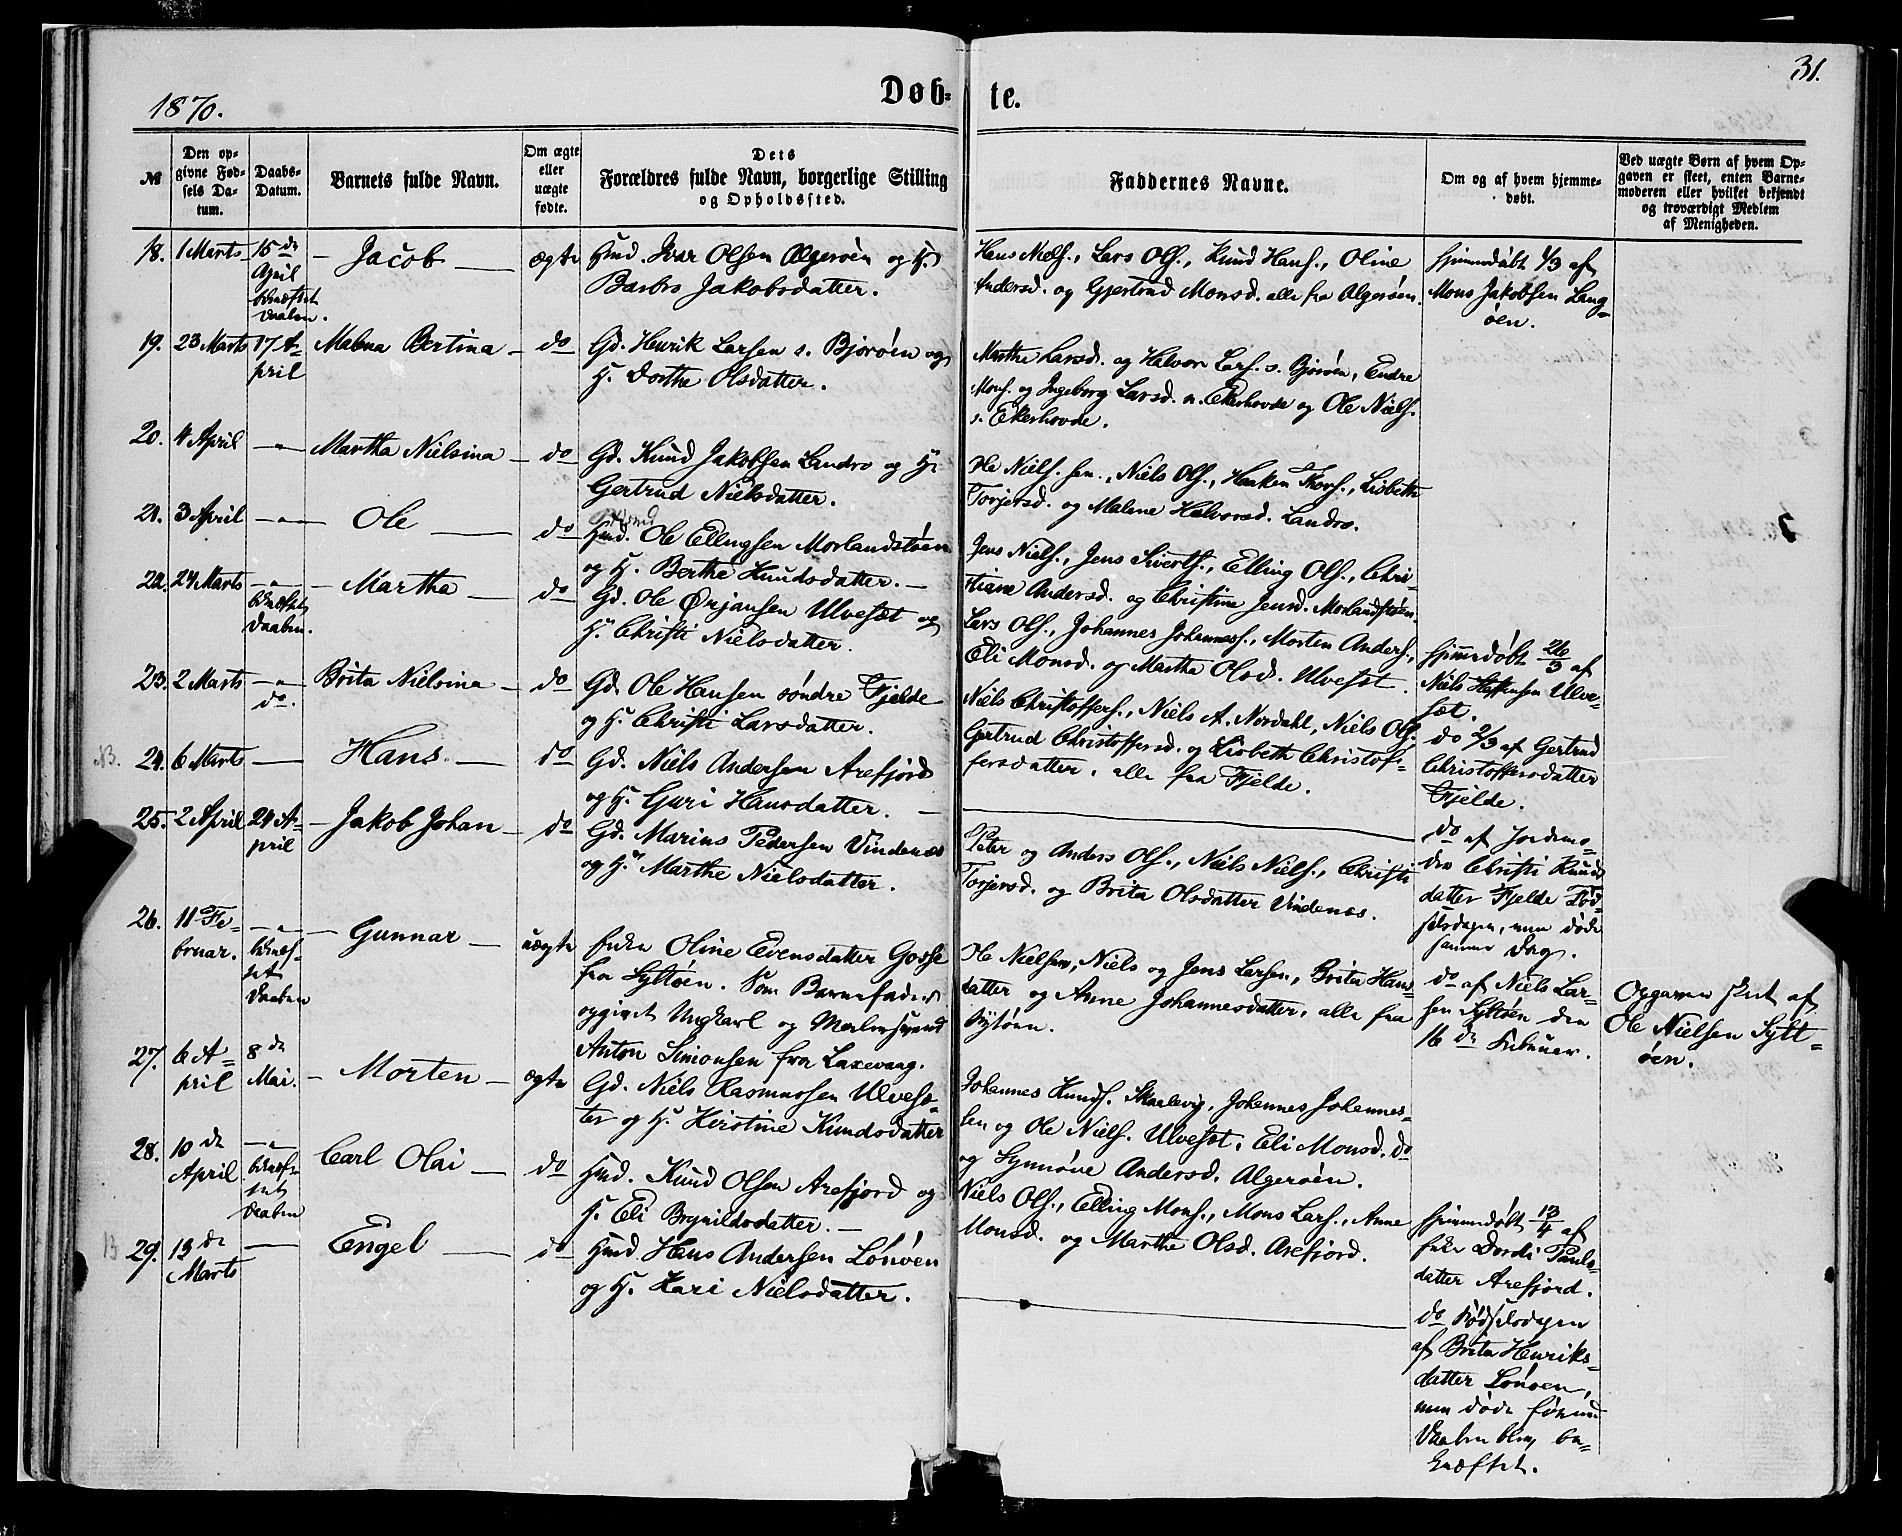 31.
1870.
Døb-te.
№
Den opgivne Fødsels Datum.
Daabs-Datum.
Barnets fulde Navn.
Om ægte eller uægte fødte.
Dets Forældres fulde Navn, borgerlige Stilling og Opholdssted.
Faddernes Navne.
Om og af hvem hjemmedøbt.
Ved uægte Børn af hvem Opgaven er skeet, enten Barnemoderen eller hvilket bekjendt og troværdigt Medlem af Menigheden.
18. 1 Marts 15de April bekræftet Daaben. Jacob ægte
Hmd. Ivar Olsen Algerøen og H.
Barbro Jakobsdatter.
Hans Niels., Lars Ols., Knud Hans., Oline
Andersd. og Gjertrud Monsd. alle fra Algerøen.
hjemmedøbt 1/3 af
Mons Jakobsen Lang-
øen.
19. 23 Marts 17 A-
pril Malena Bertina do
Gd. Henrik Larsen s. Bjorøen og
H. Dorthe Olsdatter.
Marthe Larsd. og Halvor Lars. s. Bjorøen, Endre
Mons. og Ingeborg Larsd. n. Ekerhovde og Ole Niels.
s. Ekerhovde.
20. 4 April -"- Martha Nielsina do
Gd. Knud Jakobsen Landro og H.
Gertrud Nielsdatter.
Ole Niels. sen., Niels Ols., Haaken Thors., Lisbeth
Torjersd. og Malene Halvorsd. Landro.
21. 3 April -"- Ole do
Hmd. Ole Ellingsen Morlandstøen
og H. Berthe Knudsdatter.
Jens Niels., Jens Siverts., Elling Ols., Chri-
stiane Andersd. og Christine Jensd. Morlandstøen.
22. 24 Marts -"- bekræftet Daaben. Martha do
Gd. Ole Ørjansen Ulvesæt og
H. Christi Nielsdatter.
Lars Ols., Johannes Johanness., Morten Anders.,
Eli Monsd. og Martha Olsd. Ulvesæt.
hjemmedøbt 26/3 af
Niels Steffensen Ulve-
sæt.
23. 2 Marts -"- do. Brita Nielsina do
Gd. Ole Hansen søndre Fjelde
og H. Christi Larsdatter.
Niels Christoffers., Niels A. Nordahl, Niels Ols.
Gertrud Christoffersd. og Lisbeth Christof-
fersdatter, alle fra Fjelde.
do 2/3 af Gertrud
Christoffersdatter
Fjelde.
NB. 24. 6 Marts Hans. do
Gd. Niels Andersen Arefjord
og H. Guri Hansdatter.
do af Jordemo-
der Christi Knuds
datter Fjelde Fød-
selsdagen, men døde
samme Dag.
25. 2 April 24 A-
pril Jakob Johan do
Gd. Marius Pedersen Vindenes
og H. Marthe Nielsdatter.
Peter og Anders Ols., Niels Niels., Christi
Torjersd. og Brita Olsdatter Vindenes.
26. 11 Fe-
bruar. -"- bekræf-
tet Daaben Gunnar uægte
Pige Oline Evensdatter Gosse
fra Syltøen. Som Barnefader
opgivet Ungkarl og
Anton Simonsen fra Laxevaag.
Ole Nielsen, Niels og Jens Larsen, Brita Hans-
datter og Anne Johannesdatter, alle fra
Syltøen.
do af Niels Lar-
sen Syltøen den
16 de Februar.
Opgaven skeet af
Ole Nielsen Sylt-
øen.
27. 6 A-
pril 8 de
Mai. Morten ægte
Gd. Niels Rasmussen Ulvesæ-
ter og H. Kirstine Knudsdatter
Johannes Knuds. Skaalevig, Johannes Johannes-
sen og Ole Niels. Ulvesæt, Eli Monsd. do
og Synnøve Andersd. Algerøen.
28. 10 de
April -"- bekræf-
tet Daaben Carl Olai do
Hmd. Knud Olsen Arefjord og
H. Eli Brynildsdatter.
Niels Ols., Elling Mons., Mons Lars., Anne
Monsd. og Marthe Olsd. Arefjord.
hjemmedøbt 13/4 af
Pige Dordi Pauls-
datter Arefjord.
29. 13 de
Marts Engel do
Hmd. Hans Andersen Lønøen
og H. Kari Nielsdatter.
do Fødselsdagen
af Brita Henriks-
datter Lønøen,
men døde førend
Daaben blev be-
kræftet.